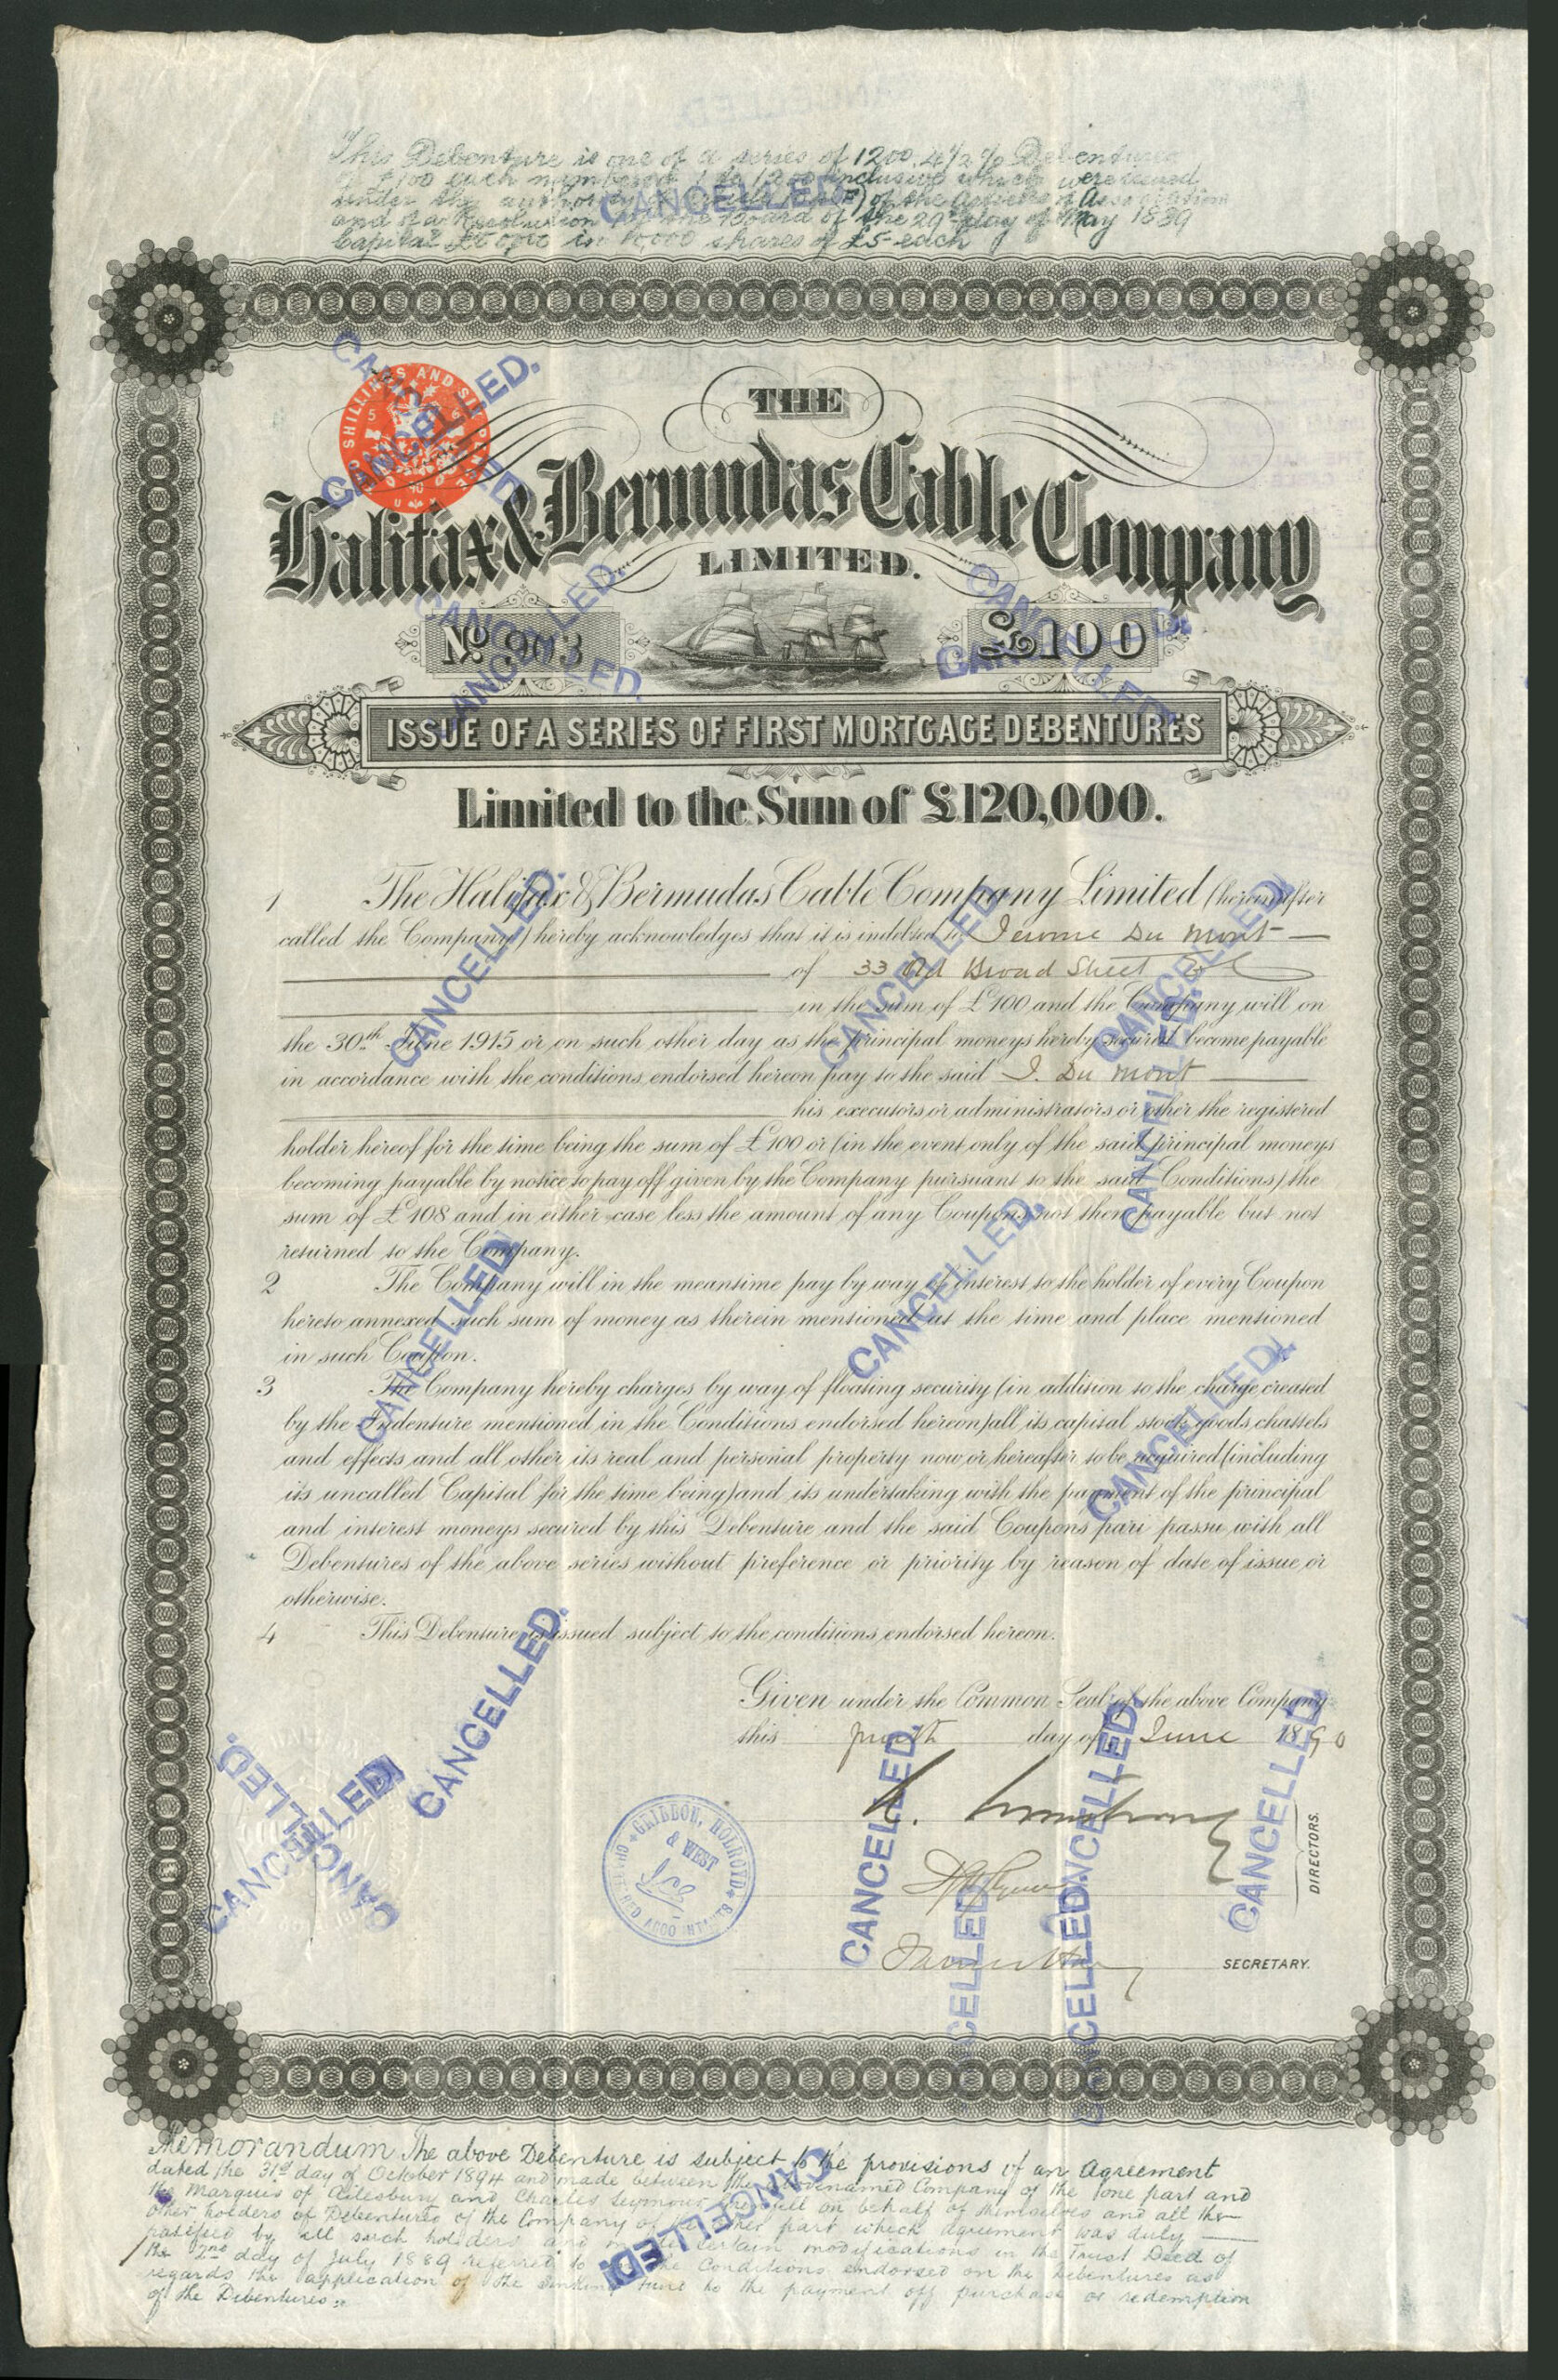 This Debenture is one of a series of 1200, 4½% Debentures
of £100 each numbered 1 to 1200 inclusive which were issued
under the authority of the Articles of Association
and of a Resolution of the Board of the 29th day of May 1889
Capital in 10,000 shares of £5 each
CANCELLED.
SHILLINGS AND SIX PENCE
THE
Halifax & Bermudas Cable Company
LIMITED.
No 903
£100
ISSUE OF A SERIES OF FIRST MORTGAGE DEBENTURES
Limited to the Sum of £120,000.
1 The Halifax & Bermudas Cable Company Limited (hereinafter
called the Company) hereby acknowledges that it is indebted to Jerome Du Mont
of 33 Old Broad Street
in the sum of £100 and the Company will on
the 30th June 1915 or on such other day as the principal moneys hereby secured become payable
in accordance with the conditions endorsed hereon pay to the said J. Du Mont
his executors or administrators or other the registered
holder hereof for the time being the sum of £100 or (in the event only of the said principal moneys
becoming payable by notice to pay off given by the Company pursuant to the said Conditions) the
sum of £108 and in either case less the amount of any Coupons not then payable but not
returned to the Company.
2 The Company will in the meantime pay by way of interest to the holder of every Coupon
hereto annexed such sum of money as therein mentioned at the time and place mentioned
in such Coupon.
3 The Company hereby charges by way of floating security (in addition to the charge created
by the Indenture mentioned in the Conditions endorsed hereon) all its capital stock goods chattels
and effects and all other its real and personal property now or hereafter to be acquired (including
its uncalled Capital for the time being) and its undertaking with the payment of the principal
and interest moneys secured by this Debenture and the said Coupons pari passu with all
Debentures of the above series without preference or priority by reason of date of issue or
otherwise.
4 This Debenture is issued subject to the conditions endorsed hereon.
Given under the Common Seal of the above Company
this day of June 1890
DIRECTORS.
GRIBBON, HOLROYD
& WEST
CHARTERED ACCOUNTANTS
SECRETARY.
Memorandum The above Debenture is subject to the provisions of an Agreement
dated the 31st day of October 1894 and made between the abovenamed Company of the one part and
the Marquis of Ailesbury and Charles Seymour Grenfell on behalf of themselves and all the
other holders of Debentures of the Company of the other part which agreement was duly
passed by all such holders and made certain modifications in the Trust Deed of
the 2nd day of July 1889 referred to in the Conditions endorsed on the Debentures as
regards the application of the Sinking Fund to the payment off purchase or redemption
of the Debentures